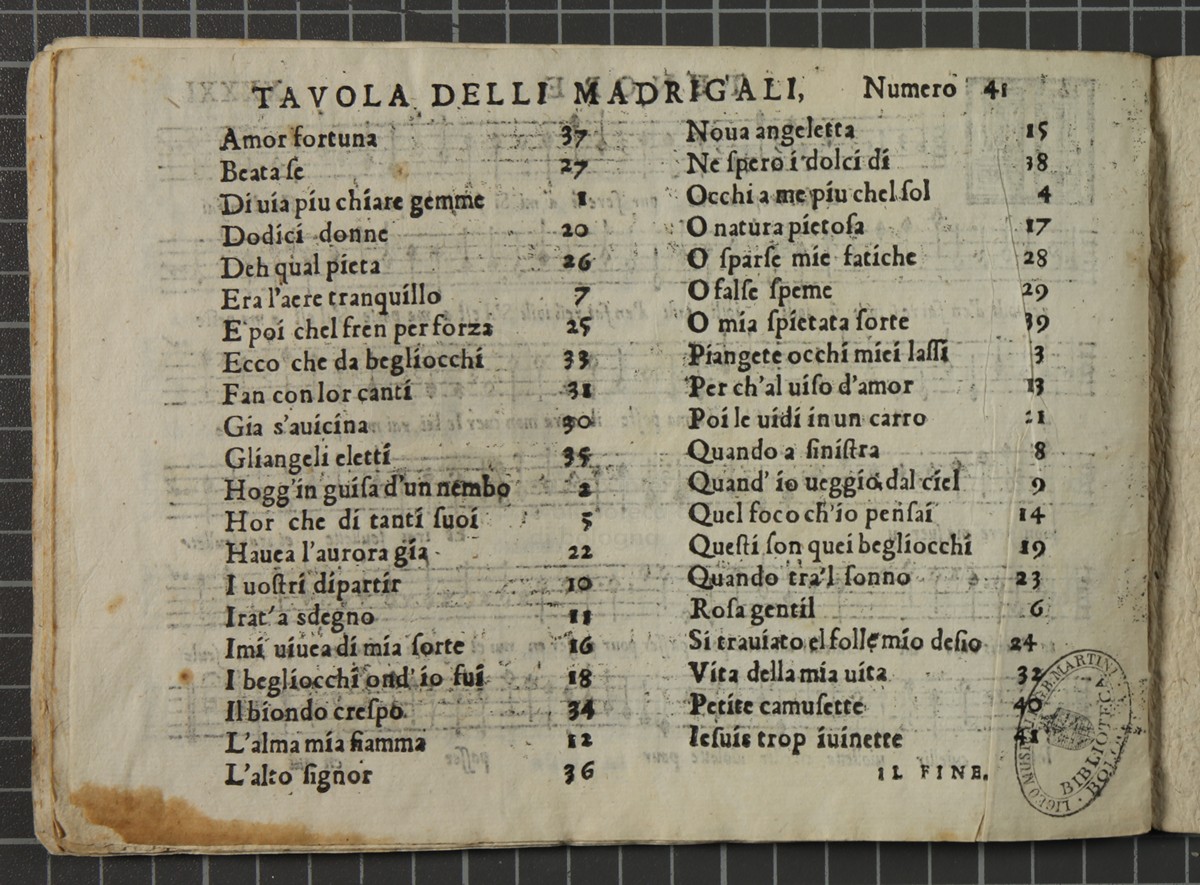 TAVOLA DELLI MADRIGALI, Numero 41
Amor fortuna 37
Beata ſe 27
Di uia piu chiare gemme 1
Dodici donne 20
Deh qual pieta 26
Era l'aere tranquillo 7
E poi chel fren per forza 25
Ecco che da begliocchi 33
Fan con lor canti 31
Gia s'auicina 30
Gliangeli eletti 35
Hogg'in guiſa d'un nembo 2
Hor che di tanti ſuoi 5
Hauea l'aurora gia 22
I uoſtri dipartir 10
Irat'a sdegno 11
Imi uiuea di mia ſorte 16
I begliocchi ond'io fui 18
Il biondo creſpo 34
L'alma mia fiamma 12
L'alto ſignor 36
Noua angeletta 15
Ne ſpero i dolci di 38
Occhi a me piu chel ſol 4
O natura pietoſa 17
O ſparſe mie fatiche 28
O falſe ſpeme 29
O mia ſpietata ſorte 39
Piangete occhi miei laſſi 3
Per ch'al uiſo d'amor 13
Poi le uidi in un carro 21
Quando a ſiniſtra 8
Quand' io ueggio dal ciel 9
Quel foco ch'io penſai 14
Queſti ſon quei begliocchi 19
Quando tra'l ſonno 23
Roſa gentil 6
Si trauiato el folle mio deſio 24
Vita della mia uita 32
Petite camuſette 40
Ieſuis trop iuinette 41
IL FINE.
BIBLIOTECA